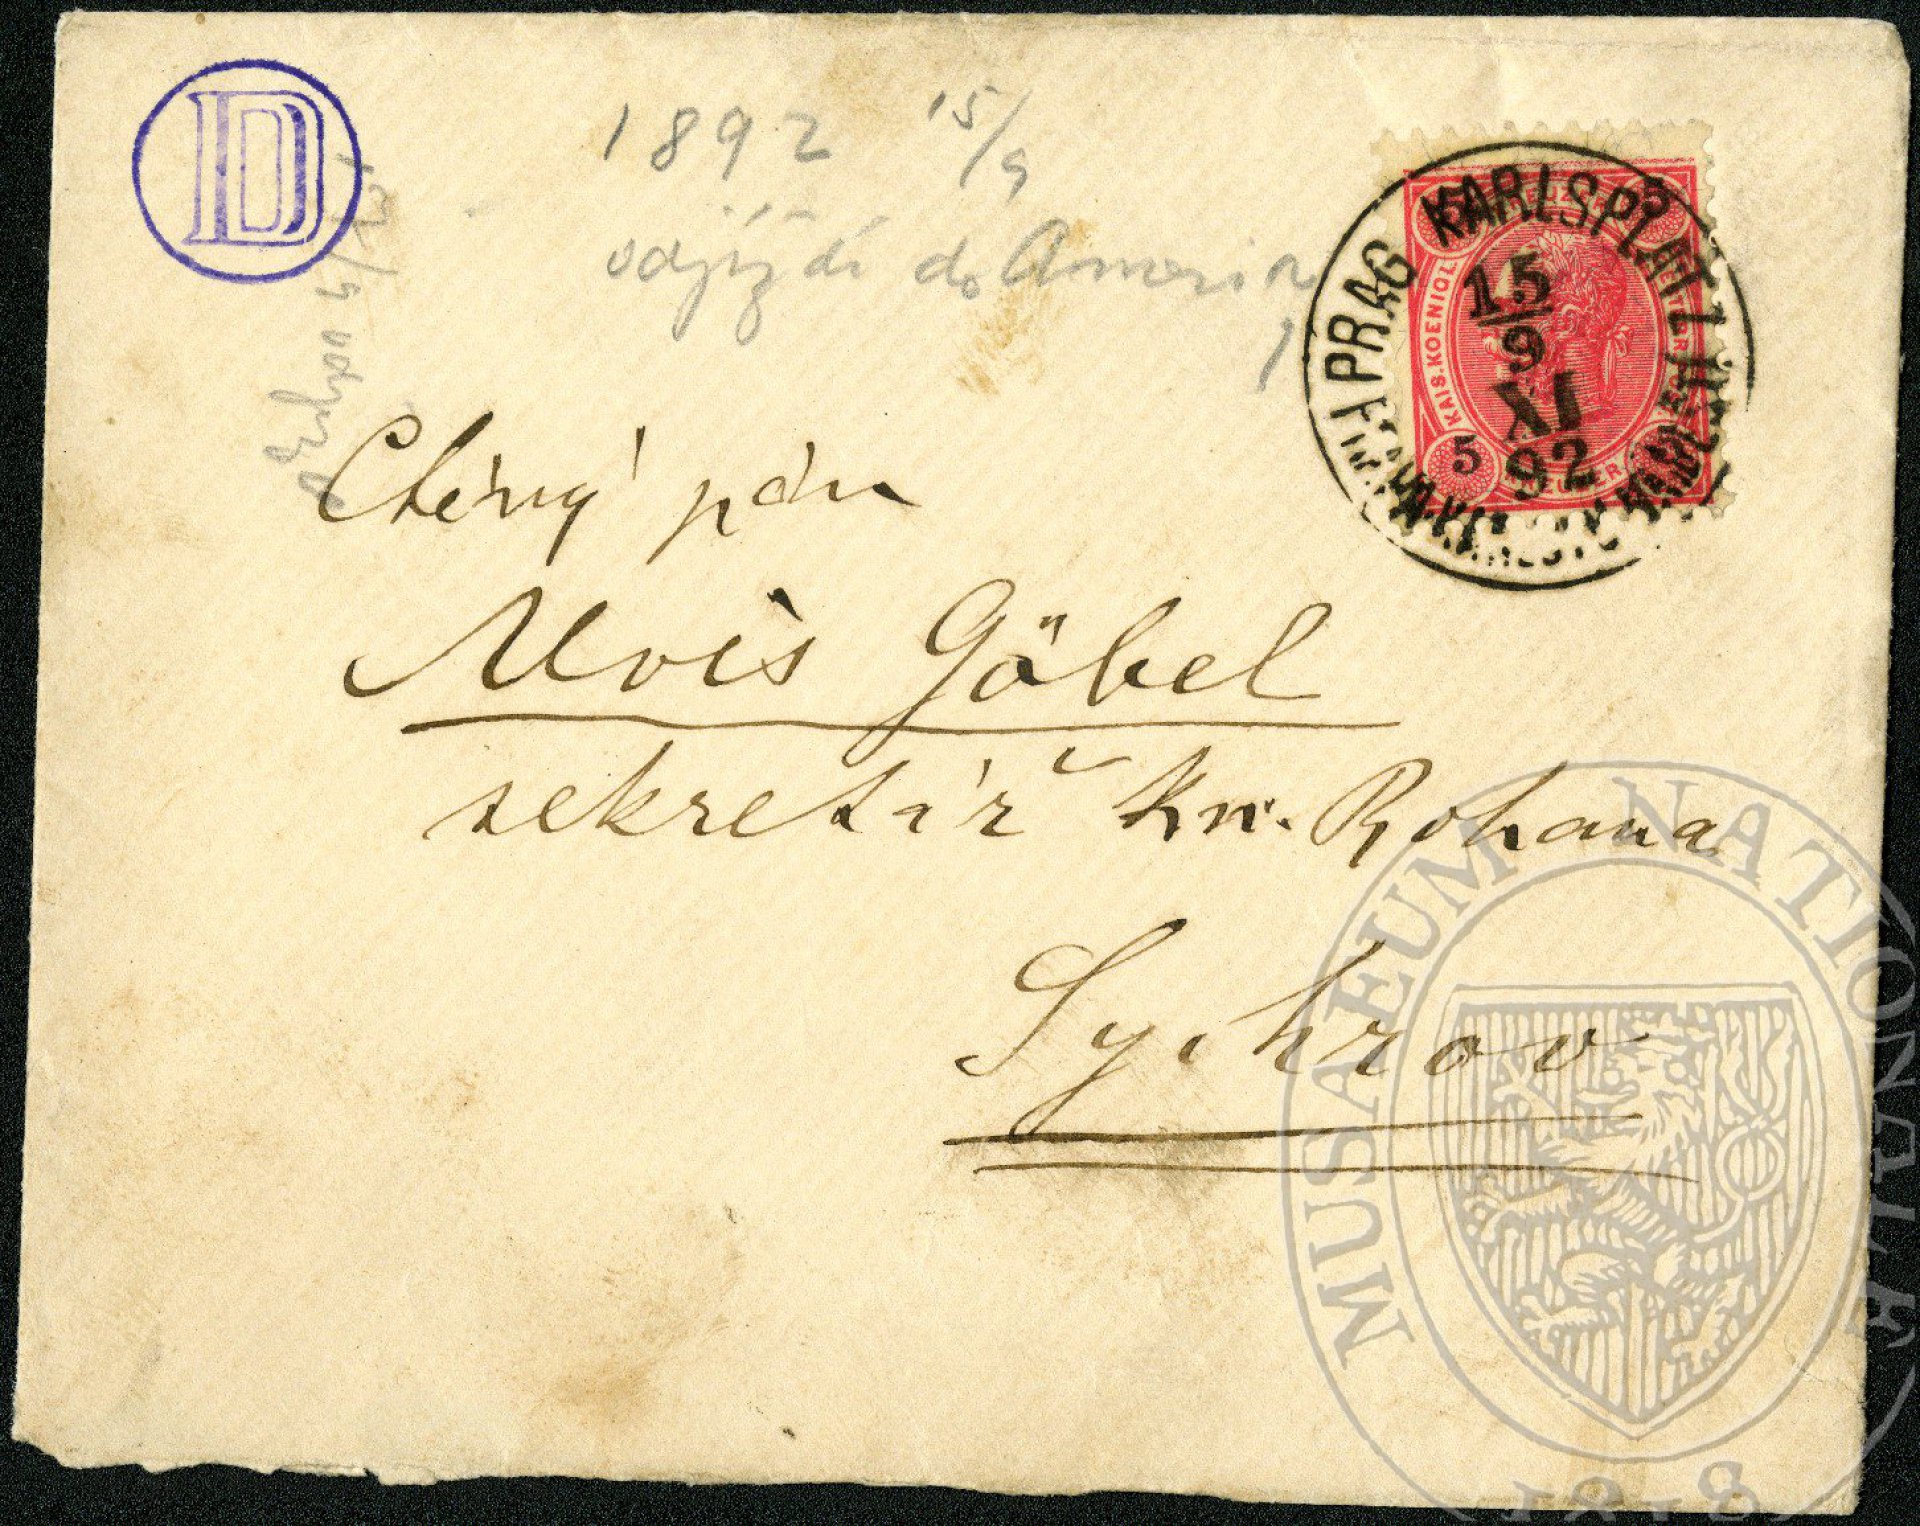 D
1892 15/9
odjíždí do Ameriky
PRAG KARLSPLATZ
15
9
XI
92
KAIS. KOENIGL.
5
Ctěný pán
Alois Göbel
sekretář Kn. Rohana
Sychrov
MUSAEUM NATIONALE
1818